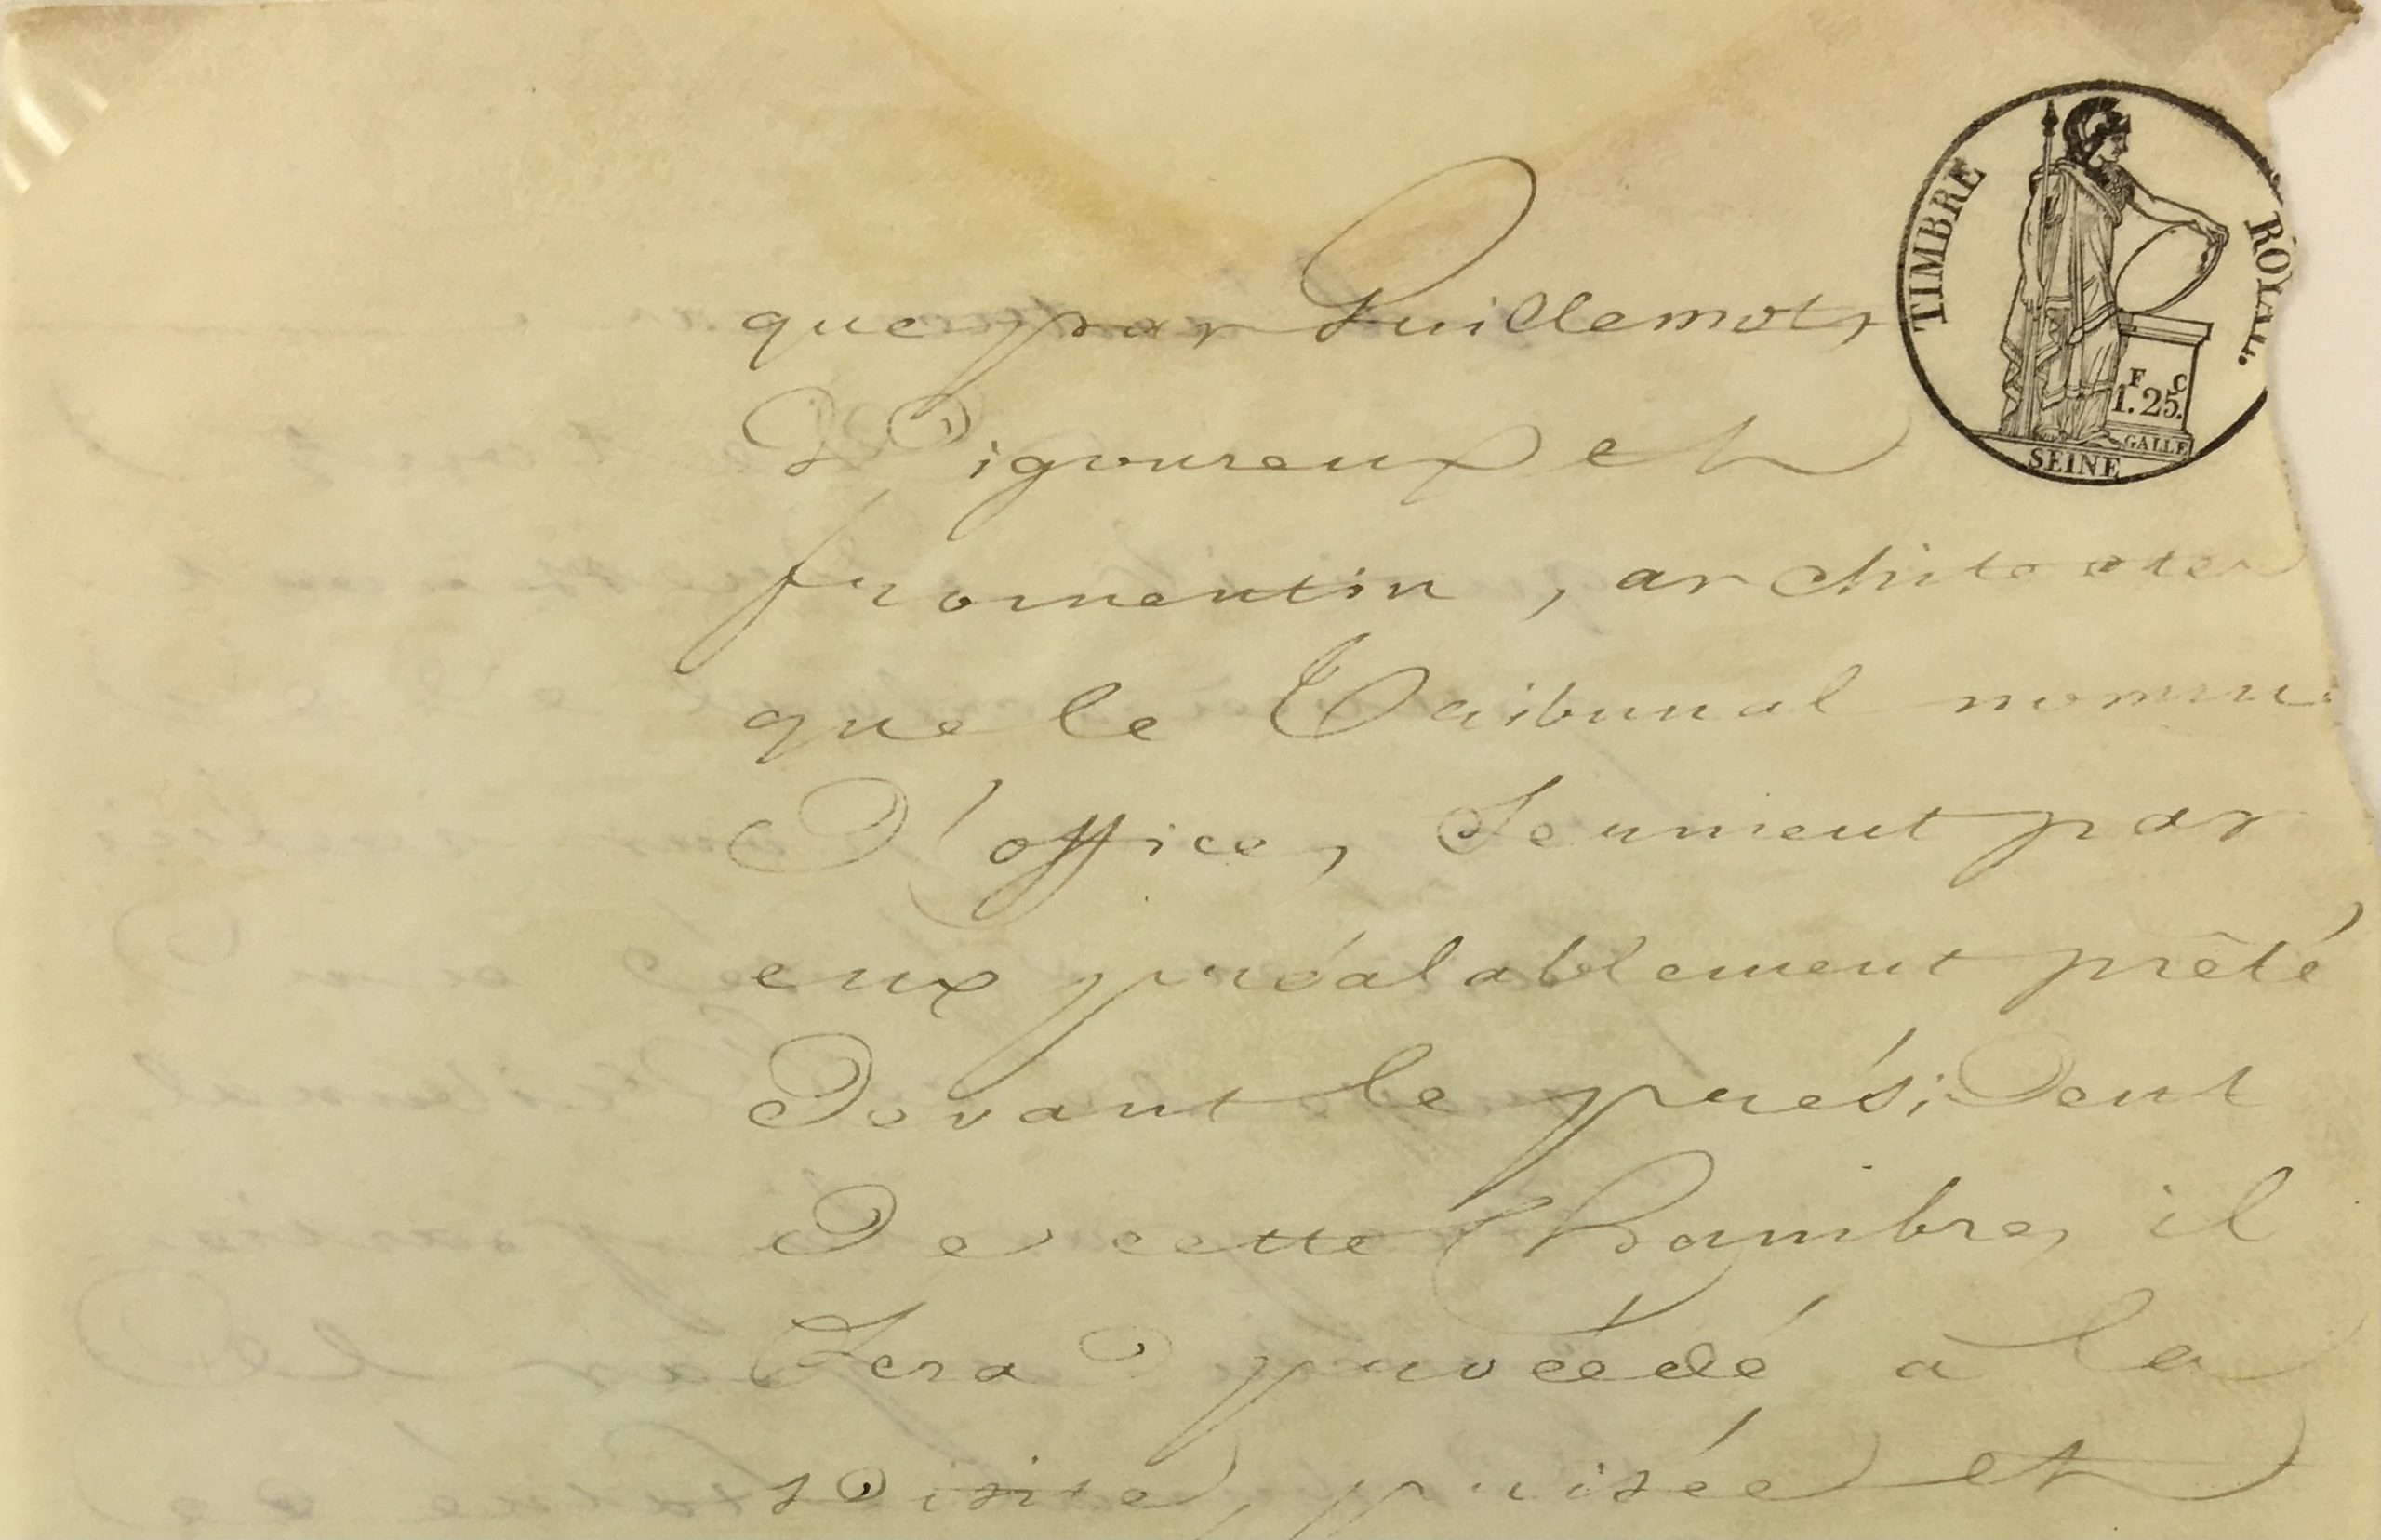 que par Guillemot,
Vigoureux et
fromentin, architectes
que le Tribunal nomme
D'office, Serment par
eux préalablement prêté
Devant le président
De cette Chambre, il
Sera procédé à la
visite, prisée et
TIMBRE ROYAL.
F C
1.25.
GALLE
SEINE